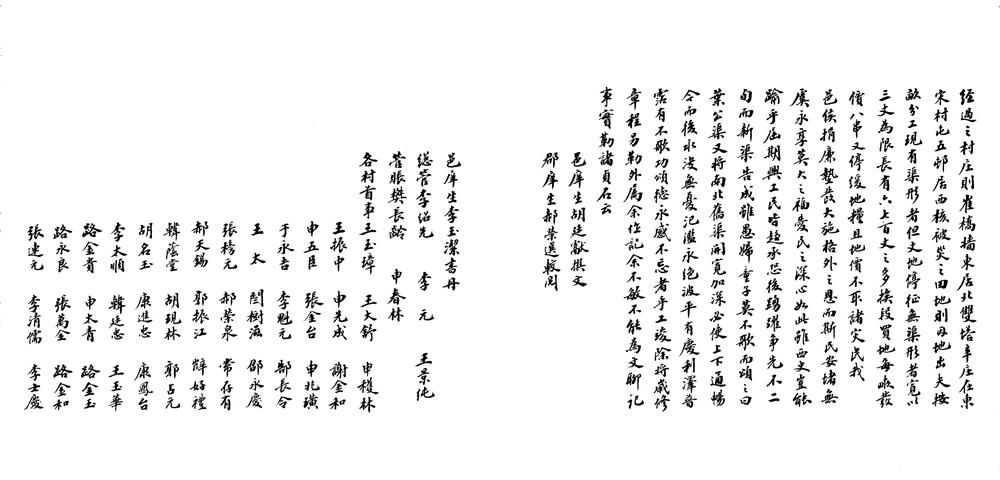 經過之村庄則崔橋墙東居北雙塔辛庄在東
宋村屯五邨居西核被災之田地則因地出夫按
畝分工現有渠形者但丈地停征無渠形者寬以
三丈為限長有六上百丈之多挨段買地每畝發
價八串又停缓地糧且地價不取諸灾民我
邑侯捐廉墊發大施格外之恩而斯民安堵無
虞永享莫大之福憂民之深心如此雖西丈豈能
踰乎屆期興工民皆趋承恐後踴躍争先不二
旬而新渠告成雖愚婦童子莫不歌而頌之曰
葉公渠又將南北舊渠開寬加深必使上下通暢
今而後水浚無憂氾濫永绝波平有慶利澤普
霑有不歌功頌德永感不忘者乎工竣除將歲修
章程另勒外属余作記余不敏不能為文聊記
事實勒諸貞石云
邑庠生胡廷獻撰文
郡庠生郝荣選較閲
邑庠生李玉潔書丹
總管李紹先 李元 王景純
管賬樊長齡 申春林
各村首事王玉璋 王大舒 申稳林
王振中 申先成 謝金和
申五臣 張金台 申兆璜
于永吉 李魁元 郜長令
王太 閆樹滋 邵永慶
張榜元 郝榮泉 常存有
郝天錫 郭振江 薛好禮
韓蔭堂 胡現林 郭占元
胡名玉 康進忠 康鳳台
李太順 韓廷忠 王玉華
路金貴 申太青 路金玉
路永良 張萬全 路金和
張連元 李清儒 李士慶